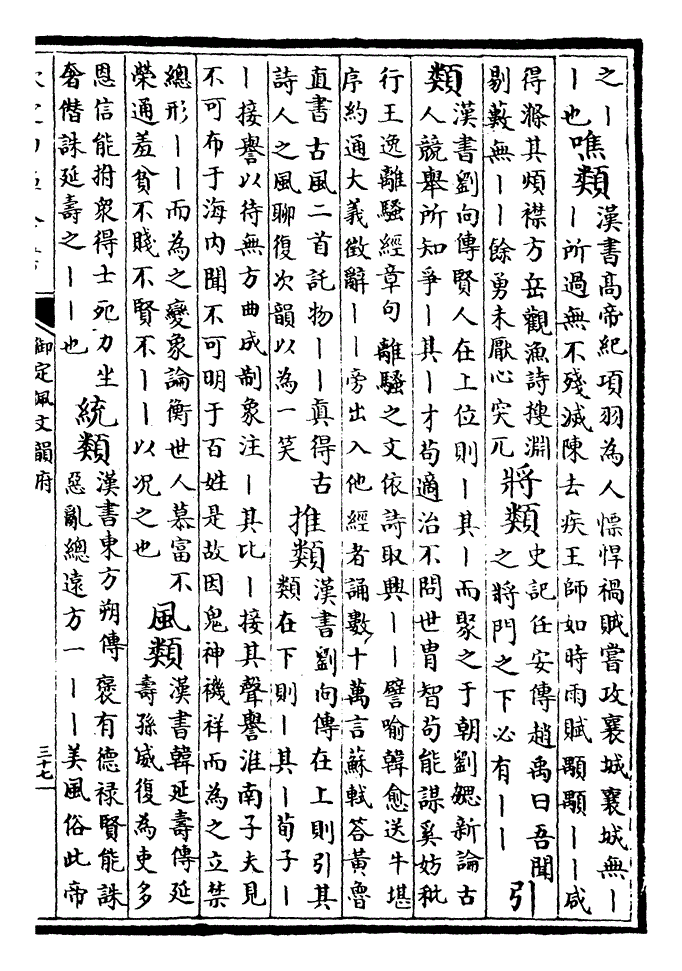 之丨
丨也
噍類
漢書高帝紀項羽為人慓悍禍賊嘗攻襄城襄城無丨
丨所過無不殘滅陳去疾王師如時雨賦顒顒丨丨咸
得滌其煩襟方岳觀漁詩搜淵
剔藪無丨丨餘勇未厭心突兀
將類
史記任安傳趙禹曰吾聞
之將門之下必有丨丨
引
類
漢書劉向傳賢人在上位則丨其丨而聚之于朝劉勰新論古
人競舉所知爭丨其丨才苟適治不問世胄智苟能謀奚妨秕
行王逸離騷經章句 離騷之文依詩取興丨丨譬喻韓愈送牛堪
序約通大義徵辭丨丨旁出入他經者誦數十萬言蘇軾答黃魯
直書古風二首託物丨丨真得古
詩人之風聊復次韻以為一笑
推類
漢書劉向傳在上則引其
類在下則丨其丨荀子丨
丨接譽以待無方曲成制象注丨其比丨接其聲譽淮南子夫見
不可布于海内聞不可明于百姓是故因鬼神禨祥而為之立禁
總形丨丨而為之變象論衡世人慕富不
榮通羞貧不賤不賢不丨丨以况之也
風類
漢書韓延壽傳延
壽孫威復為吏多
恩信能拊衆得士死力坐
奢僭誅延壽之丨丨也
統類
漢書東方朔傳 褒有德禄賢能誅
惡亂總遠方一丨丨美風俗此帝
御定佩文韻府
三十七